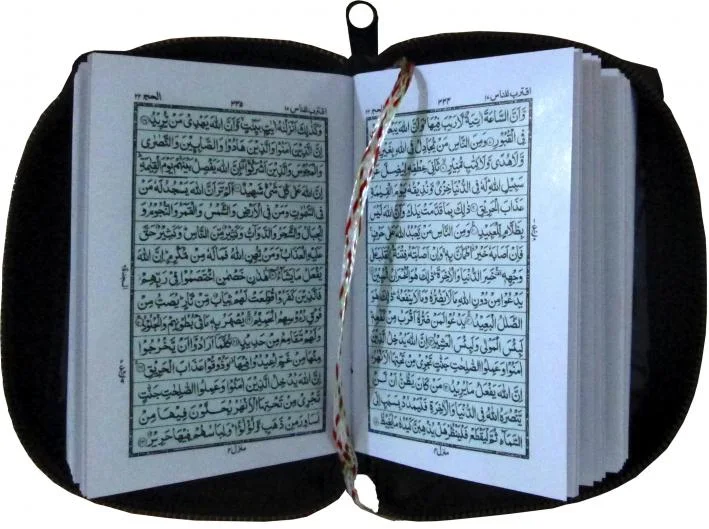 اقترب للناس ١٧ ٣٣٤ الحج ٢٢
وَّاَنَّ السَّاعَةَ اٰتِيَةٌ لَّا رَيْبَ فِيْهَا وَاَنَّ اللّٰهَ يَبْعَثُ
فِى الْقُبُوْرِ وَمِنَ النَّاسِ مَنْ يُّجَادِلُ فِى اللّٰهِ بِغَيْرِ
وَّلَا هُدًى وَّلَا كِتٰبٍ مُّنِيْرٍ ثَانِىَ عِطْفِهٖ لِيُضِلَّ عَنْ
سَبِيْلِ اللّٰهِ لَهٗ فِى الدُّنْيَا خِزْىٌ وَّنُذِيْقُهٗ يَوْمَ
عَذَابَ الْحَرِيْقِ ذٰلِكَ بِمَا قَدَّمَتْ يَدٰكَ وَاَنَّ اللّٰهَ لَيْسَ
بِظَلَّامٍ لِّلْعَبِيْدِ وَمِنَ النَّاسِ مَنْ يَّعْبُدُ اللّٰهَ عَلٰى حَرْفٍ
فَاِنْ اَصَابَهٗ خَيْرُ اۨطْمَاَنَّ بِهٖ وَاِنْ اَصَابَتْهُ فِتْنَةُ اۨنْقَلَبَ عَلٰى
وَجْهِهٖ خَسِرَ الدُّنْيَا وَالْاٰخِرَةَ ذٰلِكَ هُوَ الْخُسْرَانُ الْمُبِيْنُ
يَدْعُوْا مِنْ دُوْنِ اللّٰهِ مَا لَا يَضُرُّهٗ وَمَا لَا يَنْفَعُهٗ ذٰلِكَ هُوَ
الضَّلٰلُ الْبَعِيْدُ يَدْعُوْا لَمَنْ ضَرُّهٗۤ اَقْرَبُ مِنْ نَّفْعِهٖ
لَبِئْسَ الْمَوْلٰى وَلَبِئْسَ الْعَشِيْرُ اِنَّ اللّٰهَ يُدْخِلُ الَّذِيْنَ
اٰمَنُوْا وَعَمِلُوا الصّٰلِحٰتِ جَنّٰتٍ تَجْرِىْ مِنْ تَحْتِهَا الْاَنْهٰرُ
اِنَّ اللّٰهَ يَفْعَلُ مَا يُرِيْدُ مَنْ كَانَ يَظُنُّ اَنْ لَّنْ
يَّنْصُرَهُ اللّٰهُ فِى الدُّنْيَا وَالْاٰخِرَةِ فَلْيَمْدُدْ بِسَبَبٍ اِلَى
السَّمَآءِ ثُمَّ لْيَقْطَعْ فَلْيَنْظُرْ هَلْ يُذْهِبَنَّ كَيْدُهٗ مَا يَغِيْظُ
منزل ٤
اقترب للناس ١٧ ٣٣٥ الحج ٢٢
وَكَذٰلِكَ اَنْزَلْنٰهُ اٰيٰتٍۢ بَيِّنٰتٍ وَّاَنَّ اللّٰهَ يَهْدِىْ مَنْ يُّرِيْدُ
اِنَّ الَّذِيْنَ اٰمَنُوْا وَالَّذِيْنَ هَادُوْا وَالصّٰبِئِيْنَ وَالنَّصٰرٰى
وَالْمَجُوْسَ وَالَّذِيْنَ اَشْرَكُوْۤا اِنَّ اللّٰهَ يَفْصِلُ بَيْنَهُمْ يَوْمَ الْقِيٰمَةِ
اِنَّ اللّٰهَ عَلٰى كُلِّ شَىْءٍ شَهِيْدٌ اَلَمْ تَرَ اَنَّ اللّٰهَ يَسْجُدُ لَهٗ مَنْ
فِى السَّمٰوٰتِ وَمَنْ فِى الْاَرْضِ وَالشَّمْسُ وَالْقَمَرُ وَالنُّجُوْمُ وَ
الْجِبَالُ وَالشَّجَرُ وَالدَّوَآبُّ وَكَثِيْرٌ مِّنَ النَّاسِ وَكَثِيْرٌ حَقَّ
عَلَيْهِ الْعَذَابُ وَمَنْ يُّهِنِ اللّٰهُ فَمَا لَهٗ مِنْ مُّكْرِمٍ اِنَّ اللّٰهَ
يَفْعَلُ مَا يَشَآءُ هٰذٰنِ خَصْمٰنِ اخْتَصَمُوْا فِىْ رَبِّهِمْ
فَالَّذِيْنَ كَفَرُوْا قُطِّعَتْ لَهُمْ ثِيَابٌ مِّنْ نَّارٍ يُصَبُّ مِنْ
فَوْقِ رُءُوْسِهِمُ الْحَمِيْمُ يُصْهَرُ بِهٖ مَا فِىْ بُطُوْنِهِمْ وَالْجُلُوْدُ
وَلَهُمْ مَّقَامِعُ مِنْ حَدِيْدٍ كُلَّمَاۤ اَرَادُوْۤا اَنْ يَّخْرُجُوْا
مِنْهَا مِنْ غَمٍّ اُعِيْدُوْا فِيْهَا وَذُوْقُوْا عَذَابَ الْحَرِيْقِ
اِنَّ اللّٰهَ يُدْخِلُ الَّذِيْنَ اٰمَنُوْا وَعَمِلُوا الصّٰلِحٰتِ جَنّٰتٍ
تَجْرِىْ مِنْ تَحْتِهَا الْاَنْهٰرُ يُحَلَّوْنَ فِيْهَا مِنْ
اَسَاوِرَ مِنْ ذَهَبٍ وَّلُؤْلُؤًا وَلِبَاسُهُمْ فِيْهَا حَرِيْرٌ
منزل ٤